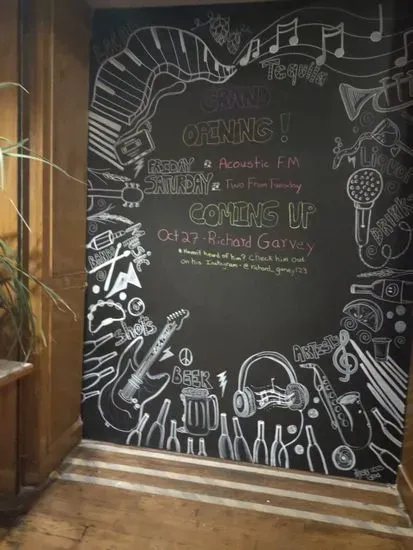 Tequila
GRAND
OPENING!
FRIDAY @ Acoustic FM
SATURDAY @ Two From Tuesday
COMING UP
Oct 27 - Richard Garvey
* Haven't heard of him? Check him out
on his Instagram -
Liquor
Drinks
Shots
BEER
Artists